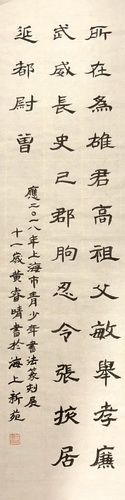 所在為雄君高祖父敏舉孝廉
武威長史巴郡朐忍令張掖居
延都尉曾
應二〇一八年上海市青少年書法篆刻展
十一歲黄睿晴書於海上新苑